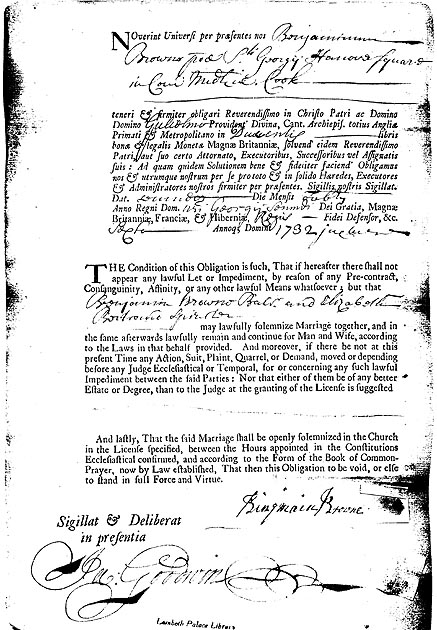 NOverint Universi per præsentes nos Benjaminum
Browne poæ Sti Georgij Hanover Square
in Com Midd's Cook
teneri & firmiter obligari Reverendissimo in Christo Patri ac Domino
Domino Gulielmo Providentiâ Divina, Cant. Archiepis. totius Angliæ
Primati & Metropolitano in Ducentis libris
bonæ & legalis Monetæ Magnæ Britanniæ, solvend' eidem Reverendissimo
Patri, aut suo certo Attornato, Executoribus, Successoribus vel Assignatis
suis: Ad quam quidem Solutionem bene & fideliter faciend' Obligamus
nos & utrumque nostrum per se pro toto & in solido Hæredes, Executores
& Administratores nostros firmiter per præsentes. Sigillis nostris Sigillat.
Dat. Die Mensis
Anno Regni Dom. nri Georgij Secundi Dei Gratia, Magnæ
Britanniæ, Franciæ, & Hiberniæ, Regis Fidei Defensor, &c.
Sexto Annoq; Domini 1732
THE Condition of this Obligation is such, That if hereafter there shall not
appear any lawful Let or Impediment, by reason of any Pre-contract,
Consanguinity, Affinity, or any other lawful Means whatsoever; but that
Benjamin Browne Batch and Elizabeth
Spinster
may lawfully solemnize Marriage together, and in
the same afterwards lawfully remain and continue for Man and Wife, according
to the Laws in that behalf provided. And moreover, if there be not at this
present Time any Action, Suit, Plaint, Quarrel, or Demand, moved or depending
before any Judge Ecclesiastical or Temporal, for or concerning any such lawful
Impediment between the said Parties: Nor that either of them be of any better
Estate or Degree, than to the Judge at the granting of the License is suggested
And lastly, That the said Marriage shall be openly solemnized in the Church
in the License specified, between the Hours appointed in the Constitutions
Ecclesiastical confirmed, and according to the Form of the Book of Common-
Prayer, now by Law established, That then this Obligation to be void, or else
to stand in full Force and Virtue.
Bingmain Browne
Sigillat & Deliberat
in presentia
Jn. Godwin
Lambeth Palace Library